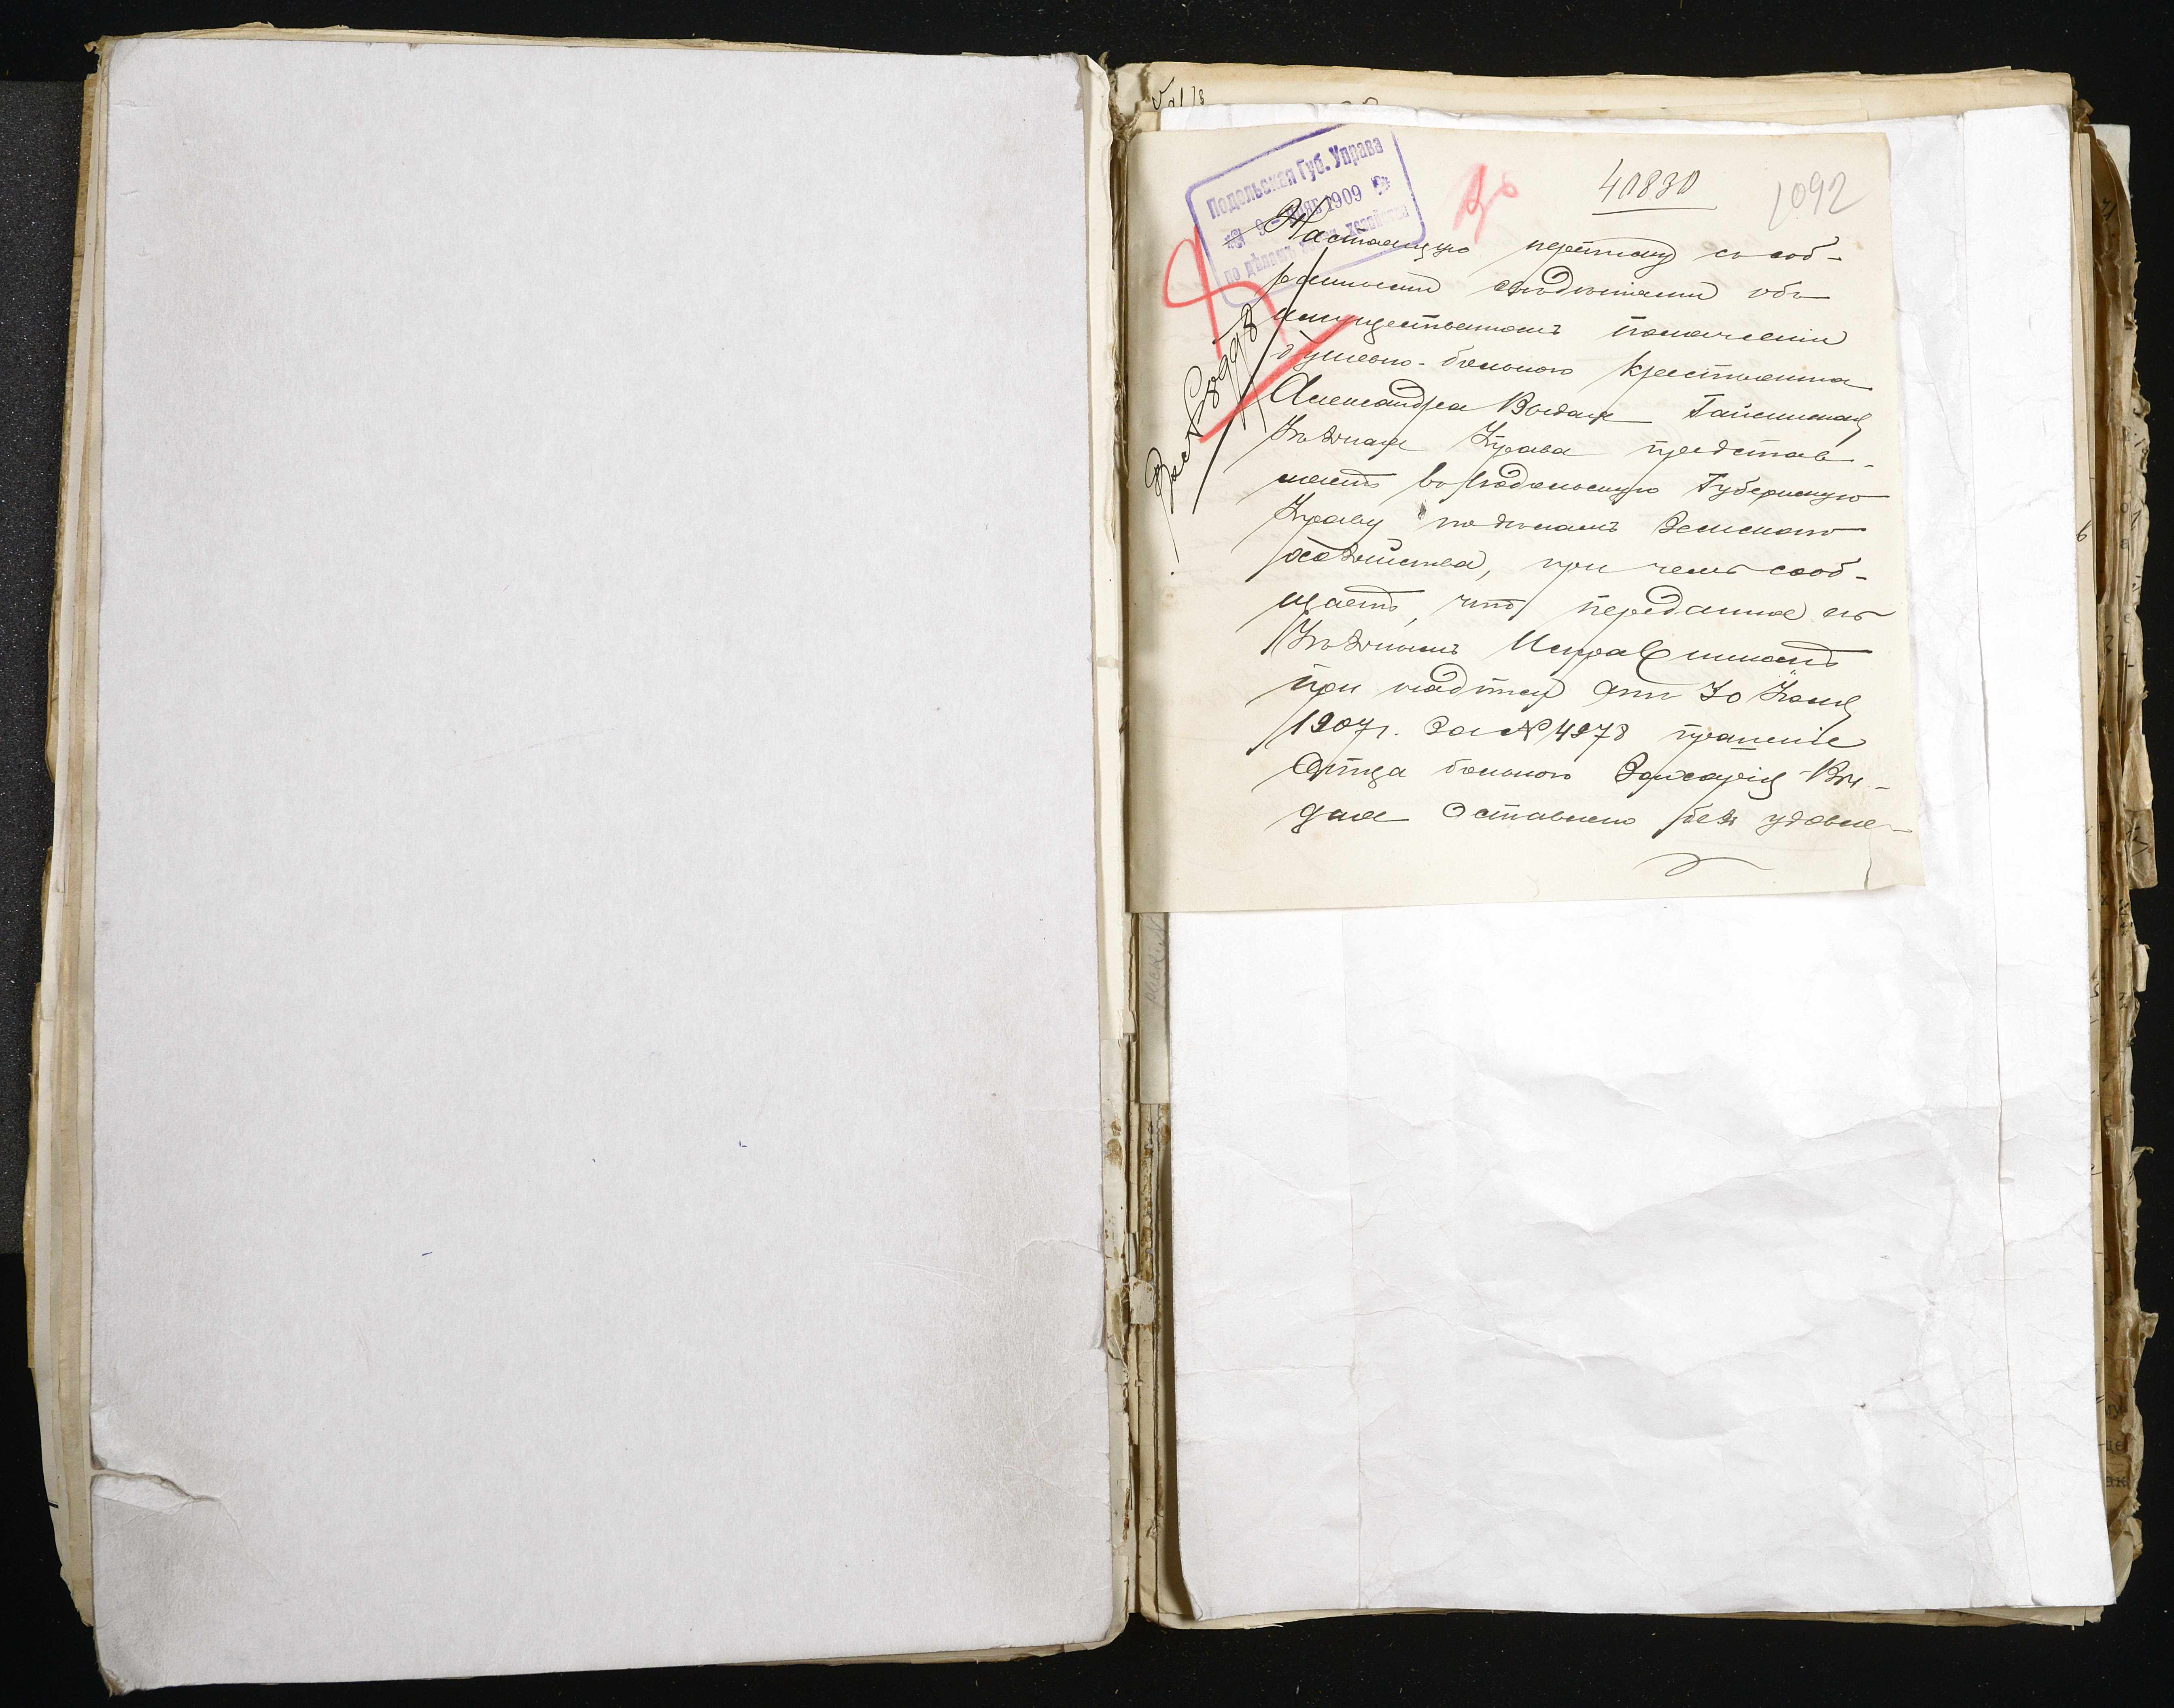 Подольская Губ. Управа
9 – 1909
по дѣламъ хозяйства
41830
1092
Настоящую переписку съ соб-
ранными свѣдѣніями объ
имущественномъ положеніи
душевно-больного крестьянина
Александра Гайсинская
Уѣздная Управа представ-
ляетъ въ Подольскую Губернскую
Управу по дѣламъ Земскаго
хозяйства, при чемъ сооб-
щаетъ, что переданное ей
Уѣзднымъ Исправникомъ
при надписи отъ 30
1907 г. за № 4978 прошеніе
отца больного Захарія
оставлено безъ удовле-